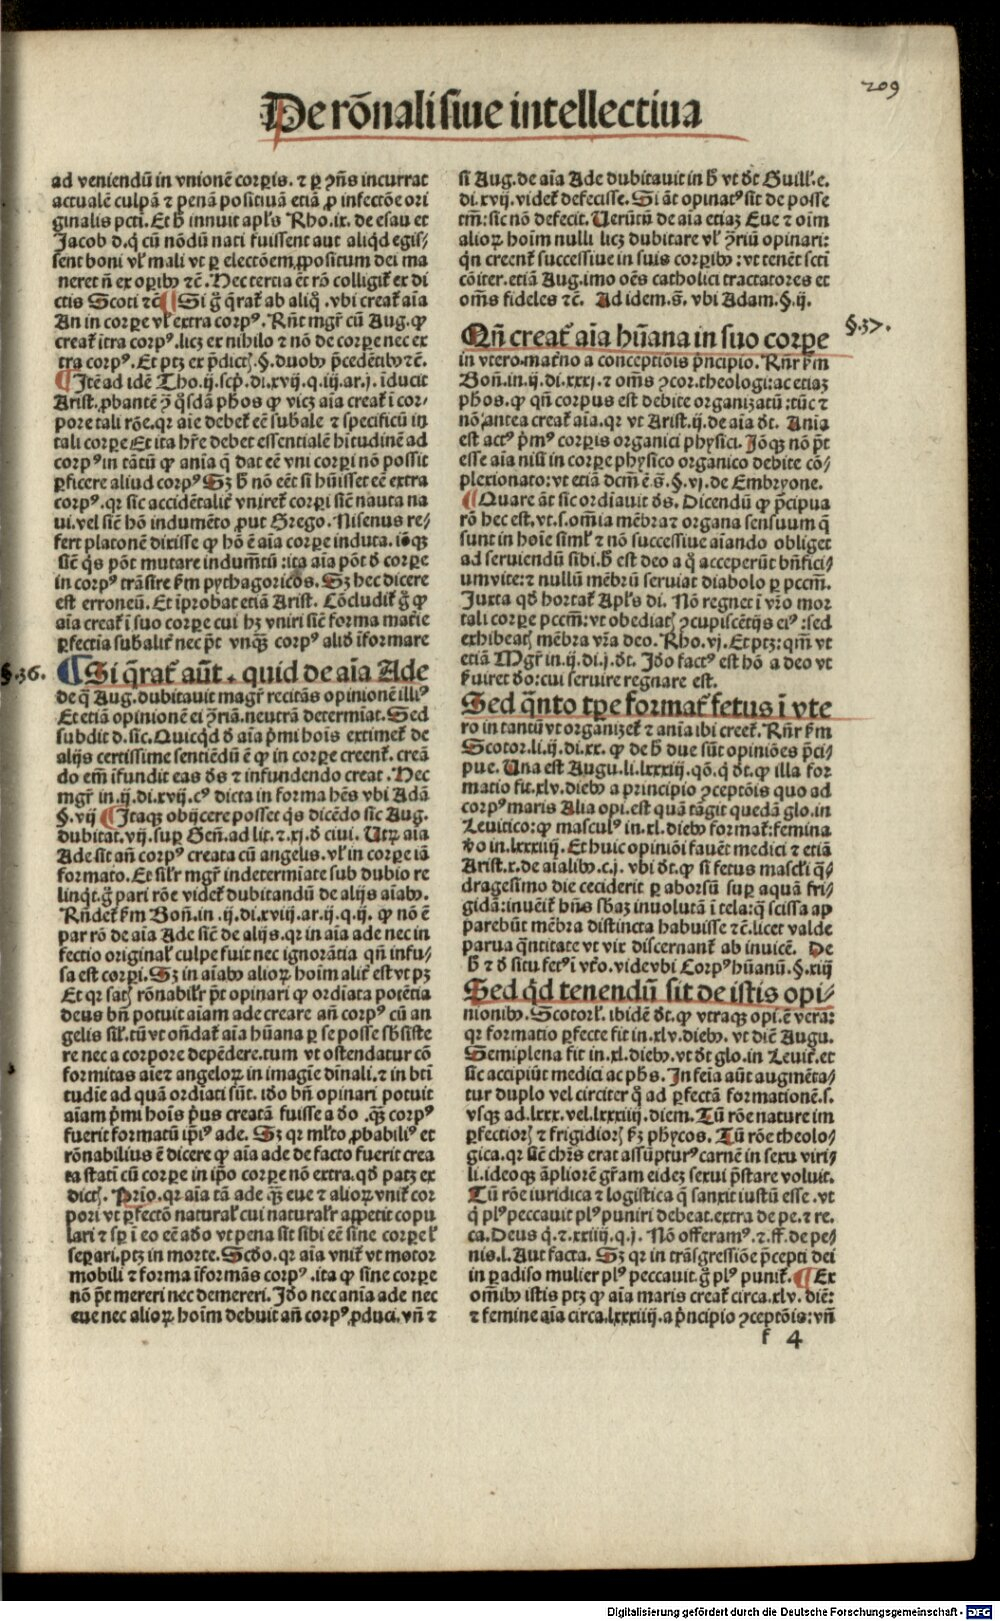 209
De rōnali siue intellectiua
ad veniendū in vnionē corꝑis. ⁊ ꝑ ꝯn̄s incurrat
actualē culpā ⁊ penā positiuā etiā ꝓ infectōe ori
ginalis pcti. Et h̄ innuit apl's Rho. ix. de esau et
Jacob d. q̄ cū nōdū nati fuissent aut aliqd egis/
sent boni vl' mali vt ꝑ electōem ꝓpositum dei ma
neret n̄ ex oꝑibꝰ ⁊c̄. Nec tertia et̄ rō colligit̉ ex di
ctis Scoti ⁊c̄ ¶ Si g̊ q̄rat̉ ab aliq̊. vbi creat̉ aīa
An in corpe vl' extra corpꝰ. Rn̄t mgr̄ cū Aug. ꝙ
creat̉ ītra corpꝰ. licꝫ ex nihilo ⁊ nō de corpe nec ex
tra corpꝰ. Et ptꝫ ex p̄dict̉. §. duobꝰ p̄cedētibꝰ ⁊c̄.
¶ Itē ad idē Tho. ij. scp̄. di. xvij. q. iij. ar. j. īducit
Arist. ꝓbantē ꝯ q̊sdā phos ꝙ victꝫ aīa creat̉ ī cor/
pore tali rōe. qr aīe debet̉ eē subale ⁊ specificū in
tali corpe Et ita hr̄e debet essentialē hitudinē ad
corpꝰ in tātū ꝙ anīa q̄ dat eē vni corpi nō possit
ꝑficere aliud corpꝰ Sꝫ h̄ nō eēt si hūisset eē extra
corpꝰ. qr sic accidētalit̉ vniret̉ corpi sic̄ nauta na
ui. vel sic̄ hō indumēto ꝓut Grego. Nisenus re/
fert platonē dixisse ꝙ hō ē aīa corpe induta. iōqꝫ
sic̄ q̊s pōt mutare indumētū: ita aīa pōt d̄ corpe
in corpꝰ trāsire km̄ pythagoricos. Sꝫ hec dicere
est erroneū. Et īprobat etiā Arist. Cōcludit̉ g̊ ꝙ
aīa creat̉ ī suo corpe cui hꝫ vniri sic̄ forma mat̉ie
ꝑfectīa subalit̉ nec p̄t vnqꝫ corpꝰ aliđ īformare
§. 36. ¶ Si q̄rat̉ aūt. quid de aīa Ade
de q̄ Aug. dubitauit magr̄ recitās opinionē illiꝰ
Et etiā opinionē ei ꝯriā. neutrā determiat. Sed
subdit d. sic. Quicq̊d d̄ aīa p̄mi hois extimet̉ de
alijs certissime sentiēdū ē ꝙ in corpe creent̉. creā
do em̄ īfundit eas d̄s ⁊ infundendo creat. Hec
mgr̄ in. ij. di. xvij. cꝰ dicta in forma hēs vbi Adā
§. vij ¶ Itaqꝫ obijcere posset q̊s dicēdo sic Aug.
dubitat. vij. suꝑ Gen̄. ad lit. ⁊. xj. d̄ ciui. Utꝝ aīa
Ade sit an̄ corpꝰ creata cū angelis. vl' in corpe iā
formato. Et sil'r mgr̄ indeterminate sub dubio re
linq̊t. g̊ pari rōe videt̉ dubitandū de alijs aīabꝰ.
Rn̄det̉ km̄ Bon̄. in. ij. di. xviij. ar. ij. q. ij. ꝙ nō ē
par rō de aīa Ade sic̄ de alijs. qr in aīa ade nec in
fectio original' culpe fuit nec ignorātia qn̄ infu/
sa est corpi. Sꝫ in aīabꝰ alioꝝ hoīm alit̉ est vt pꝫ
Et qr sat̉ rōnabilr̄ p̄t opinari ꝙ ordīata potētia
deus bn̄ potuit aīam ade creare an̄ corpꝰ cū an
gelis sil'. tū vt on̄dat̉ aīa hūana ꝑ se posse subsiste
re nec a corpore depēdere. tum vt ostendatur cō
formitas aīe ⁊ angeloꝝ in imagīe dīnali. ⁊ in bti
tudīe ad quā ordīati sūt. iđo bn̄ opinari potuit
aīam p̄mi hoīs p̄us creatā fuisse a d̄o. qꝫ corpꝰ
fuerit formatū ip̄iꝰ ade. Sꝫ qr ml'to ꝓbabiliꝰ et
rōnabilius ē dicere ꝙ aīa ade de facto fuerit crea
ta statī cū corpe in ip̄o corpe nō extra. qđ patꝫ ex
dict̉. Prīo. qr aīa tā ade qꝫ eue ⁊ alioꝝ vnit̉ cor
pori vt ꝑfectō natural' cui naturalr̄ appetit copu
lari ⁊ sp̄ ī eo eē ađo vt pena sit sibi eē sine corpe l'
separi. ptꝫ in morte. Scđo. qr aīa vnit̉ vt motor
mobili ⁊ forma īformās corpꝰ. ita ꝙ sine corpe
nō p̄t mereri nec demereri. Iđo nec anīa ade nec
eue nec alioꝝ hoīm debuit an̄ corpꝰ ꝓduci. vn̄ ⁊
si Aug. de aīa Ade dubitauit in h̄ vt d̄t Guill'. e.
di. xvij. videt̉ defecisse. Si āt opinatꝰ sit de posse
tm̄: sic nō defecit. Uerūtū de aīa etiaꝫ Eue ⁊ oīm
alioꝝ hoīm nulli licꝫ dubitare vl' ꝯriū opinari:
qn̄ creent̉ successiue in suis corpibꝰ: vt tenēt scti
cōiter. etiā Aug. imo oēs catholici tractatores et
om̄s fideles ⁊c̄. Ad idem. s̄. vbi Adam. §. ij.
§. 37.
Qn̄ creat̉ aīa hūana in suo corpe
in vtero. mat̉no a conceptiōis p̄ncipio. Rn̄r km̄
Bon̄. in. ij. di. xxxj. ⁊ om̄s ꝯcor. theologi: ac etiaꝫ
phos. ꝙ qn̄ corpus est debite organizatū: tūc ⁊
nō antea creat̉ aīa. qr vt Arist. ij. de aīa d̄t. Anīa
est actꝰ p̄mꝰ corpis organici physici. Iōqꝫ nō p̄t
esse aīa nisi in corpe physico organico debite cō/
plexionato: vt etiā dcm̄ ē. s̄. §. vj. de Embryone.
¶ Quare āt sic ordīauit d̄s. Dicendū ꝙ p̄cipua
rō hec est, vt. s. om̄ia mēbra ⁊ organa sensuum q̄
sunt in hoīe siml' ⁊ nō successiue aīando obliget
ad seruiendū sibi. h̄ est deo a q̊ acceperūt bn̄fici/
um vite: ⁊ nullū mēbrū seruiat diabolo ꝑ pccm̄.
Iuxta qđ hortat̉ Apl's di. Nō regnet ī vr̄o mor
tali corpe pccm̄: vt obediat̉ ꝯcupiscētijs eiꝰ: sed
exhibeat̉ mēbra vr̄a deo. Rho. vj. Et ptꝫ: qm̄ vt
etiā Mgr̄ in. ij. di. j. d̄t. Iđo factꝰ est hō a deo vt
s̄uiret đo: cui seruire regnare est.
Sed q̄nto tpe format̉ fetus ī vte
ro in tantū vt organizet̉ ⁊ anīa ibi creet̉. Rn̄r km̄
Scotor. li. ij. di. xx. ꝙ de h̄ due sūt opiniōes p̄ci/
pue. Una est Augu. li. lxxxiij. qō. q̊ d̄t. ꝙ illa for
matio fit. xlv. diebꝰ a principio ꝯceptōis quo ad
corpꝰ maris Alia opi. est quā tāgit quedā glo. in
Leuitico: ꝙ masculꝰ in. xl. diebꝰ format̉: femina
v̊o in. lxxxiiij. Et huic opiniōi fauēt medici ⁊ etiā
Arist. x. de aīalibꝰ. c. j. vbi d̄t. ꝙ si fetus mascl'i q̄/
dragesimo die ceciderit ꝑ aborsū suꝑ aquā fri/
gidā: inuēit̉ hn̄s sbaꝫ inuolutā ī tela: q̄ scissa ap
parebūt mēbra distincta habuisse ⁊c̄. licet valde
parua q̄ntitate vt vix discernant̉ ab inuicē. De
h̄ ⁊ d̄ situ fetꝰ ī vt̉o. vide vbi Corpꝰ hūanū. §. xiij
Sed q̊d tenendū sit de istis opi/
nionibꝰ. Scotorl'. ibidē d̄t. ꝙ vtraqꝫ opi. ē vera:
qr formatio ꝑfecte fit in. xlv. diebꝰ. vt dicē Augu.
Semiplena fit in. xl. diebꝰ. vt d̄t glo. in Leuit̉. et
sic accipiūt medici ac phs. In feīa aūt augmēta/
tur duplo vel circiter q̊ ad ꝑfectā formationē. s.
vsqꝫ ad. lxxx. vel. lxxxiiij. diem. Tū rōe nature im
ꝑfectior̉ ⁊ frigidior̉ km̄ phycos. Tū rōe theolo/
gica. qr sic̄ chr̄s erat assūpturꝰ carnē in sexu viri/
li. ideoqꝫ āpliorē gr̄am eidē sexui p̄stare voluit.
Tū rōe iuridica ⁊ logistica q̄ sanxit iustū esse. vt
q̊ plꝰ peccauit plꝰ puniri debeat. extra de pe. ⁊ re.
ca. Deus q̊. ⁊. xxiiij. q. j. Nō offeramꝰ. ⁊. ff. de pe/
nis. l. Aut facta. Sꝫ qr in trāsgressiōe p̄cepti dei
in paradiso mulier plꝰ peccauit. g̊ plꝰ punit̉. ¶ Ex
om̄ibꝰ istis ptꝫ ꝙ aīa maris creat̉ circa. xlv. diē:
⁊ femine aīa circa. lxxxiiij. a p̄ncipio ꝯceptōis: vn̄
f 4
Digitalisierung gefördert durch die Deutsche Forschungsgemeinschaft - DFG